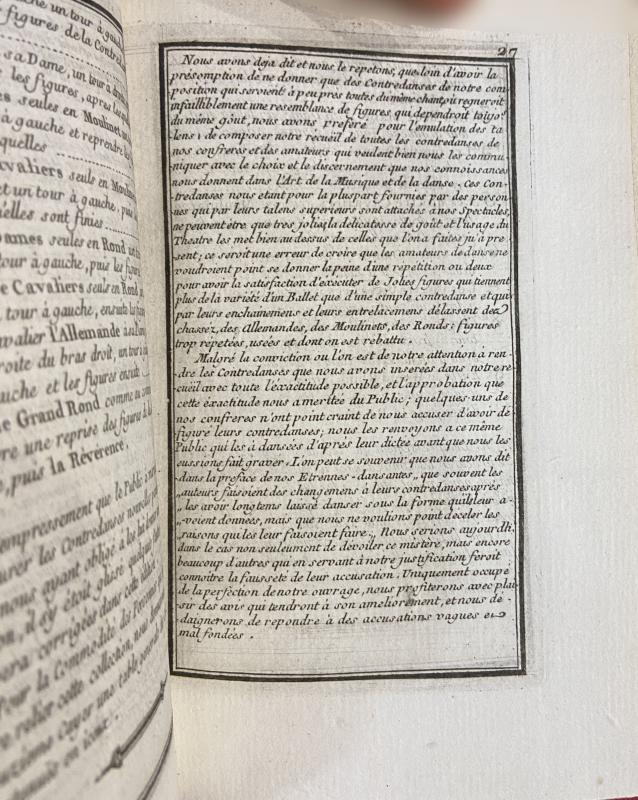 e un tour à gauch
figures de la Contred
sa Dame, un tour à
les figures, après les
es seules en Moulinet
à gauche et reprendre
quelles
valiers seuls en Moulin
et un tour à gauche, puis
uelles sont finies
ames seules en Rond
tour à gauche, puis les figur
e Cavaliers seuls en Rond
tour à gauche, ensuite les
valier l'Allemande à sa
roite du bras droit, un tour à
uche et les figures ensuite
e Grand Rond comme au
re une reprise des figures
, puis la Réverence.
empressement que le Public
les Contredanses
nous ayant obligé
on, il s'y
sera corrigées dans
Pour la Commodité des
relier cette collection, nous
une table générale
27
Nous avons deja dit et nous le repetons, que loin d'avoir la
présomption de ne donner que des Contredanses de notre com
position qui seroient à peu près toutes du même chant, ou regneroit
infailliblement une resemblance de figures, qui dependroit toujo.rs
du même goût, nous avons preferé pour l'emulation des ta
lens, de composer notre recüeil de toutes les contredanses de
nos confreres et des amateurs qui veulent bien nous les commu
-niquer avec le choix et le discernement que nos connoissances
nous donnent dans l'Art de la Musique et de la danse. Ces Con-
tredanses nous etant pour la pluspart fournies par des person
nes qui par leurs talens superieurs sont attachés à nos Spectacles,
ne peuvent être que tres jolies, la délicatesse de goût et l'usage du
Theatre les met bien au dessus de celles que l'on a faites ju'à pre-
sent; ce seroit une erreur de croire que les amateurs de danse ne
voudroient point se donner la peine d'une répétition ou deux
pour avoir la satisfaction d'executer de Jolies figures qui tiennent
plus de la varieté d'un Ballet que d'une simple contredanse et qui
par leurs enchainemens et leurs entrelacemens délassent des
chassez, des Allemandes, des Moulinets, des Ronds: figures
trop répetées, usées et dont on est rebattu.
Malgré la conviction ou l'on est de notre attention à ren-
dre les Contredanses que nous avons inserées dans notre re-
cüeil avec toute l'éxactitude possible, et l'approbation que
cette éxactitude nous a meritée du Public; quelques-uns de
nos confreres n'ont point craint de nous accuser d'avoir dé-
figuré leurs contredanses; nous les renvoyons a ce même
Public qui les à dansées d'après leur dictée avant que nous les
eussions fait graver. L'on peut se souvenir que nous avons dit
dans la preface de nos Etrennes-dansantes „ que souvent les
„auteurs faisoient des changemens à leurs contredanses après
„les avoir longtems laissé danser sous la forme qu'ils leur a-
„-voient données, mais que nous ne voulions point déceler les
„raisons qui les leur faisoient faire.„ Nous serions aujourdh.
dans le cas non seulement de dévoiler ce mistère, mais encore
beaucoup d'autres qui en servant à notre justification feroit
connoitre la fausseté de leur accusation. Uniquement occupé
de la perfection de notre ouvrage, nous profiterons avec plai
sir des avis qui tendront à son ameliorement, et nous dé-
daignerons de repondre à des accusations vagues et
mal fondées.